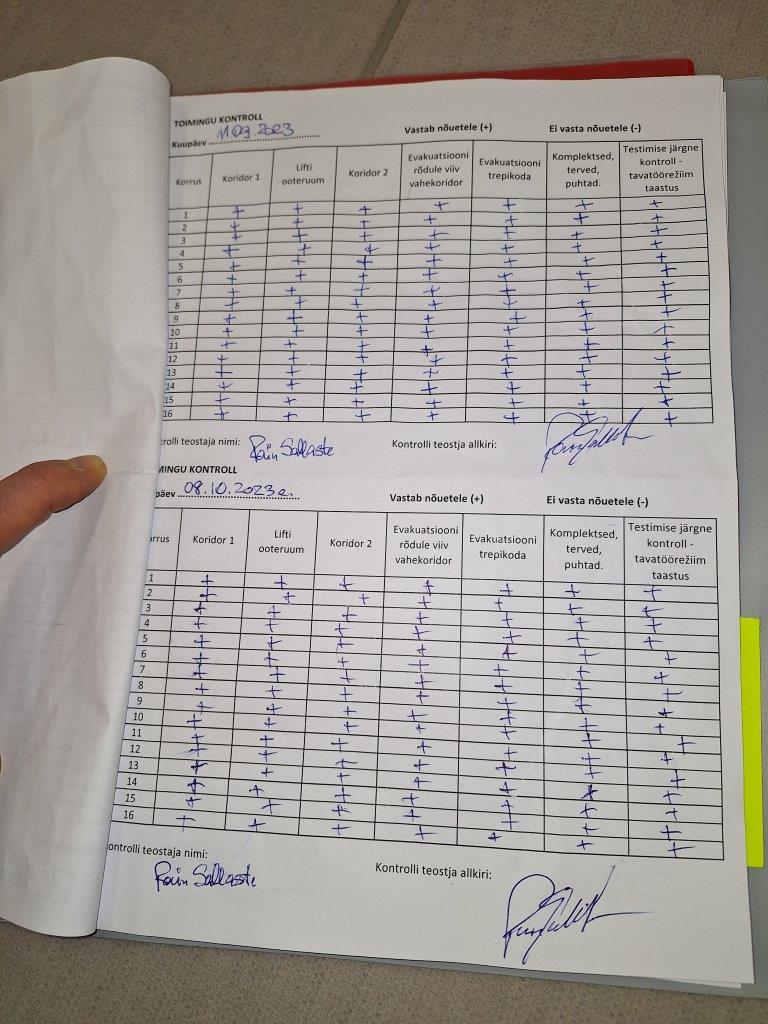 TOIMINGU KONTROLL
Kuupäev 11.03.2023 Vastab nõuetele (+) Ei vasta nõuetele (-)
Korrus Koridor 1 Lifti ooteruum Koridor 2 Evakuatsiooni rõdule viiv vahekoridor Evakuatsiooni trepikoda Komplektsed, terved, puhtad. Testimise järgne kontroll - tavatöörežiim taastus
1 + + + + + + +
2 + + + + + + +
3 + + + + + + +
4 + + + + + + +
5 + + + + + + +
6 + + + + + + +
7 + + + + + + +
8 + + + + + + +
9 + + + + + + +
10 + + + + + + +
11 + + + + + + +
12 + + + + + + +
13 + + + + + + +
14 + + + + + + +
15 + + + + + + +
16 + + + + + + +
trolli teostaja nimi: Rain Sallaste Kontrolli teostja allkiri:
MINGU KONTROLL
päev 08.10.2023 a. Vastab nõuetele (+) Ei vasta nõuetele (-)
orrus Koridor 1 Lifti ooteruum Koridor 2 Evakuatsiooni rõdule viiv vahekoridor Evakuatsiooni trepikoda Komplektsed, terved, puhtad. Testimise järgne kontroll - tavatöörežiim taastus
1 + + + + + + +
2 + + + + + + +
3 + + + + + + +
4 + + + + + + +
5 + + + + + + +
6 + + + + + + +
7 + + + + + + +
8 + + + + + + +
9 + + + + + + +
10 + + + + + + +
11 + + + + + + +
12 + + + + + + +
13 + + + + + + +
14 + + + + + + +
15 + + + + + + +
16 + + + + + + +
ontrolli teostaja nimi: Kontrolli teostja allkiri:
Rain Sallaste